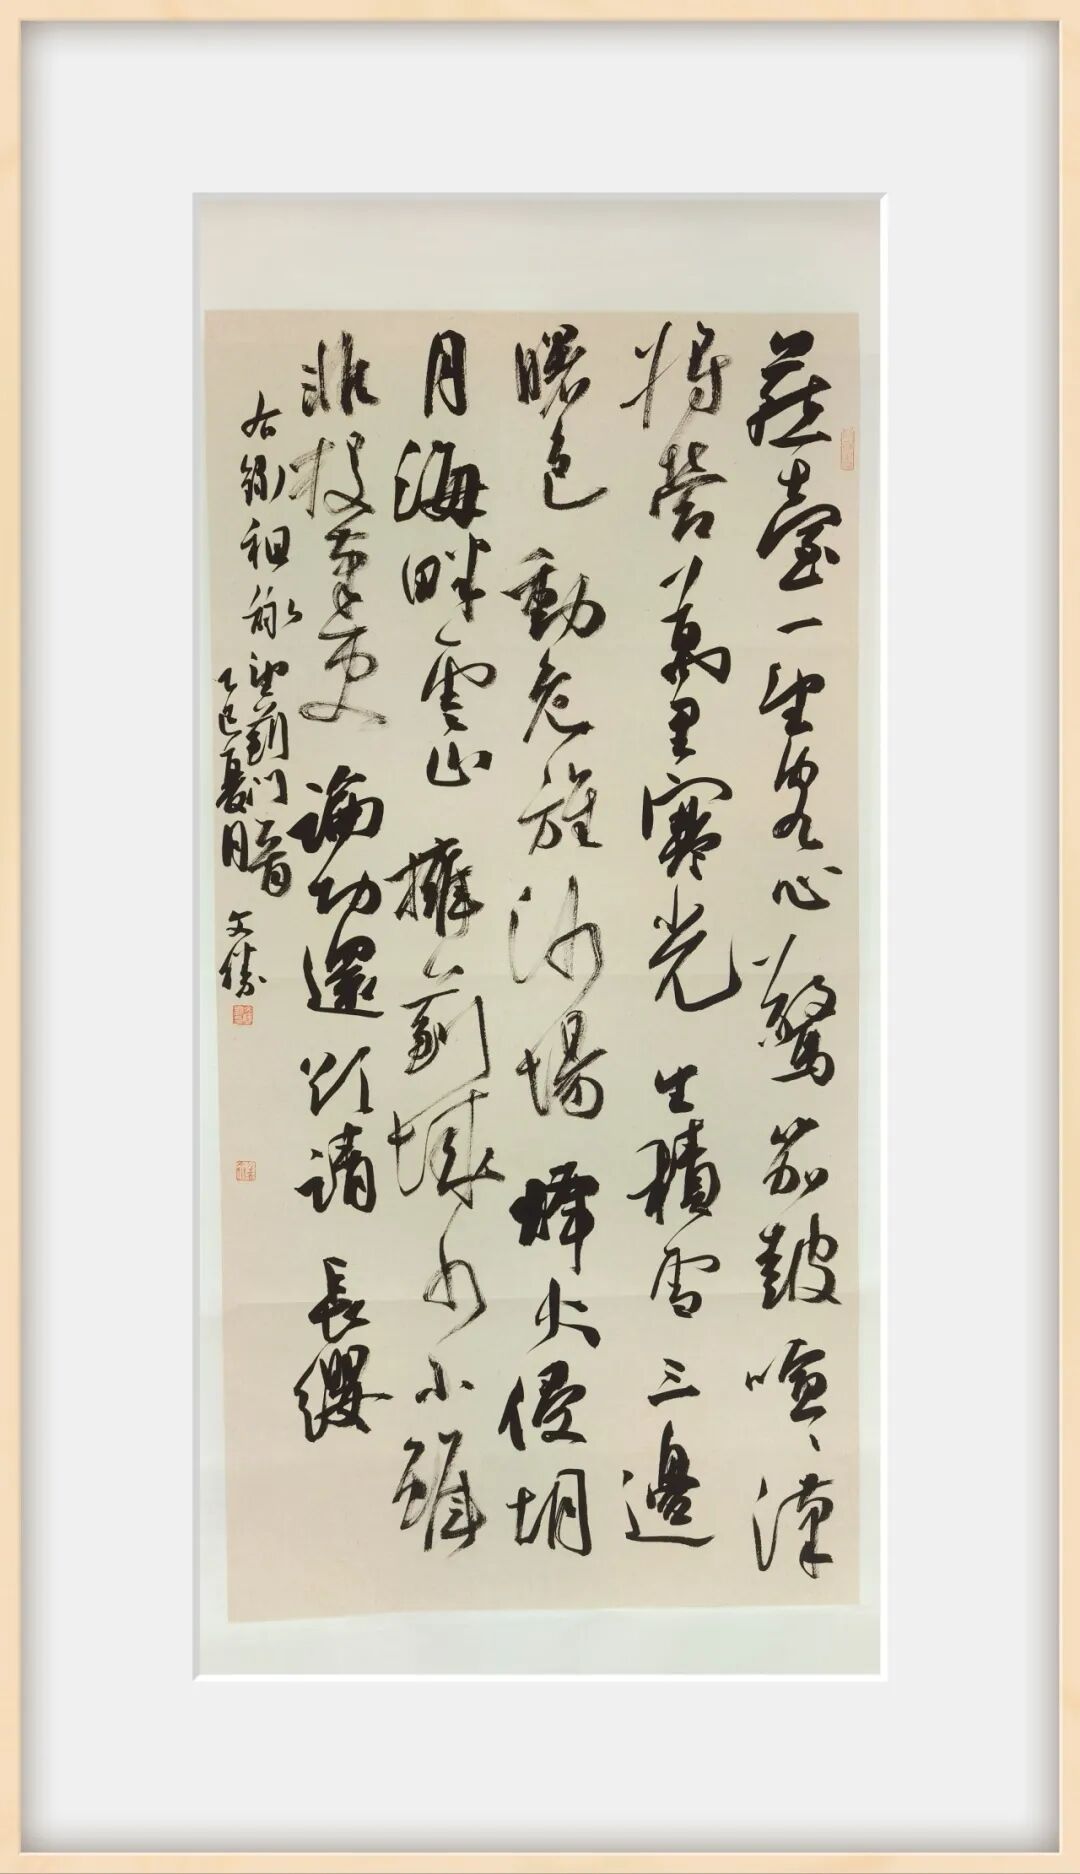 燕臺一望客心驚笳鼓喧〻漢
將營萬里寒光生積雪三邊
曙色動危旌沙場烽火侵胡
月海畔雲山擁薊城少小雖
非投筆吏論功還欲請長纓
右錄祖詠望薊門一首
乙巳夏月 文勝